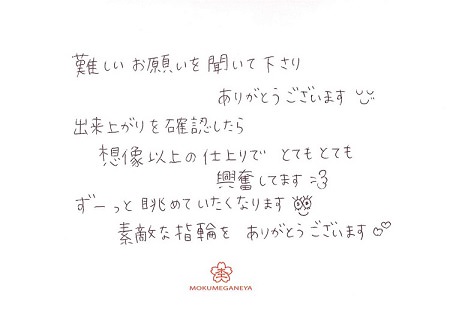 難しいお願いを聞いて下さり
ありがとうございます
出来上がりを確認したら
想像以上の仕上りで とてもとても
興奮してます
ずーっと眺めていたくなります
素敵な指輪を ありがとうございます
杢
MOKUMEGANEYA